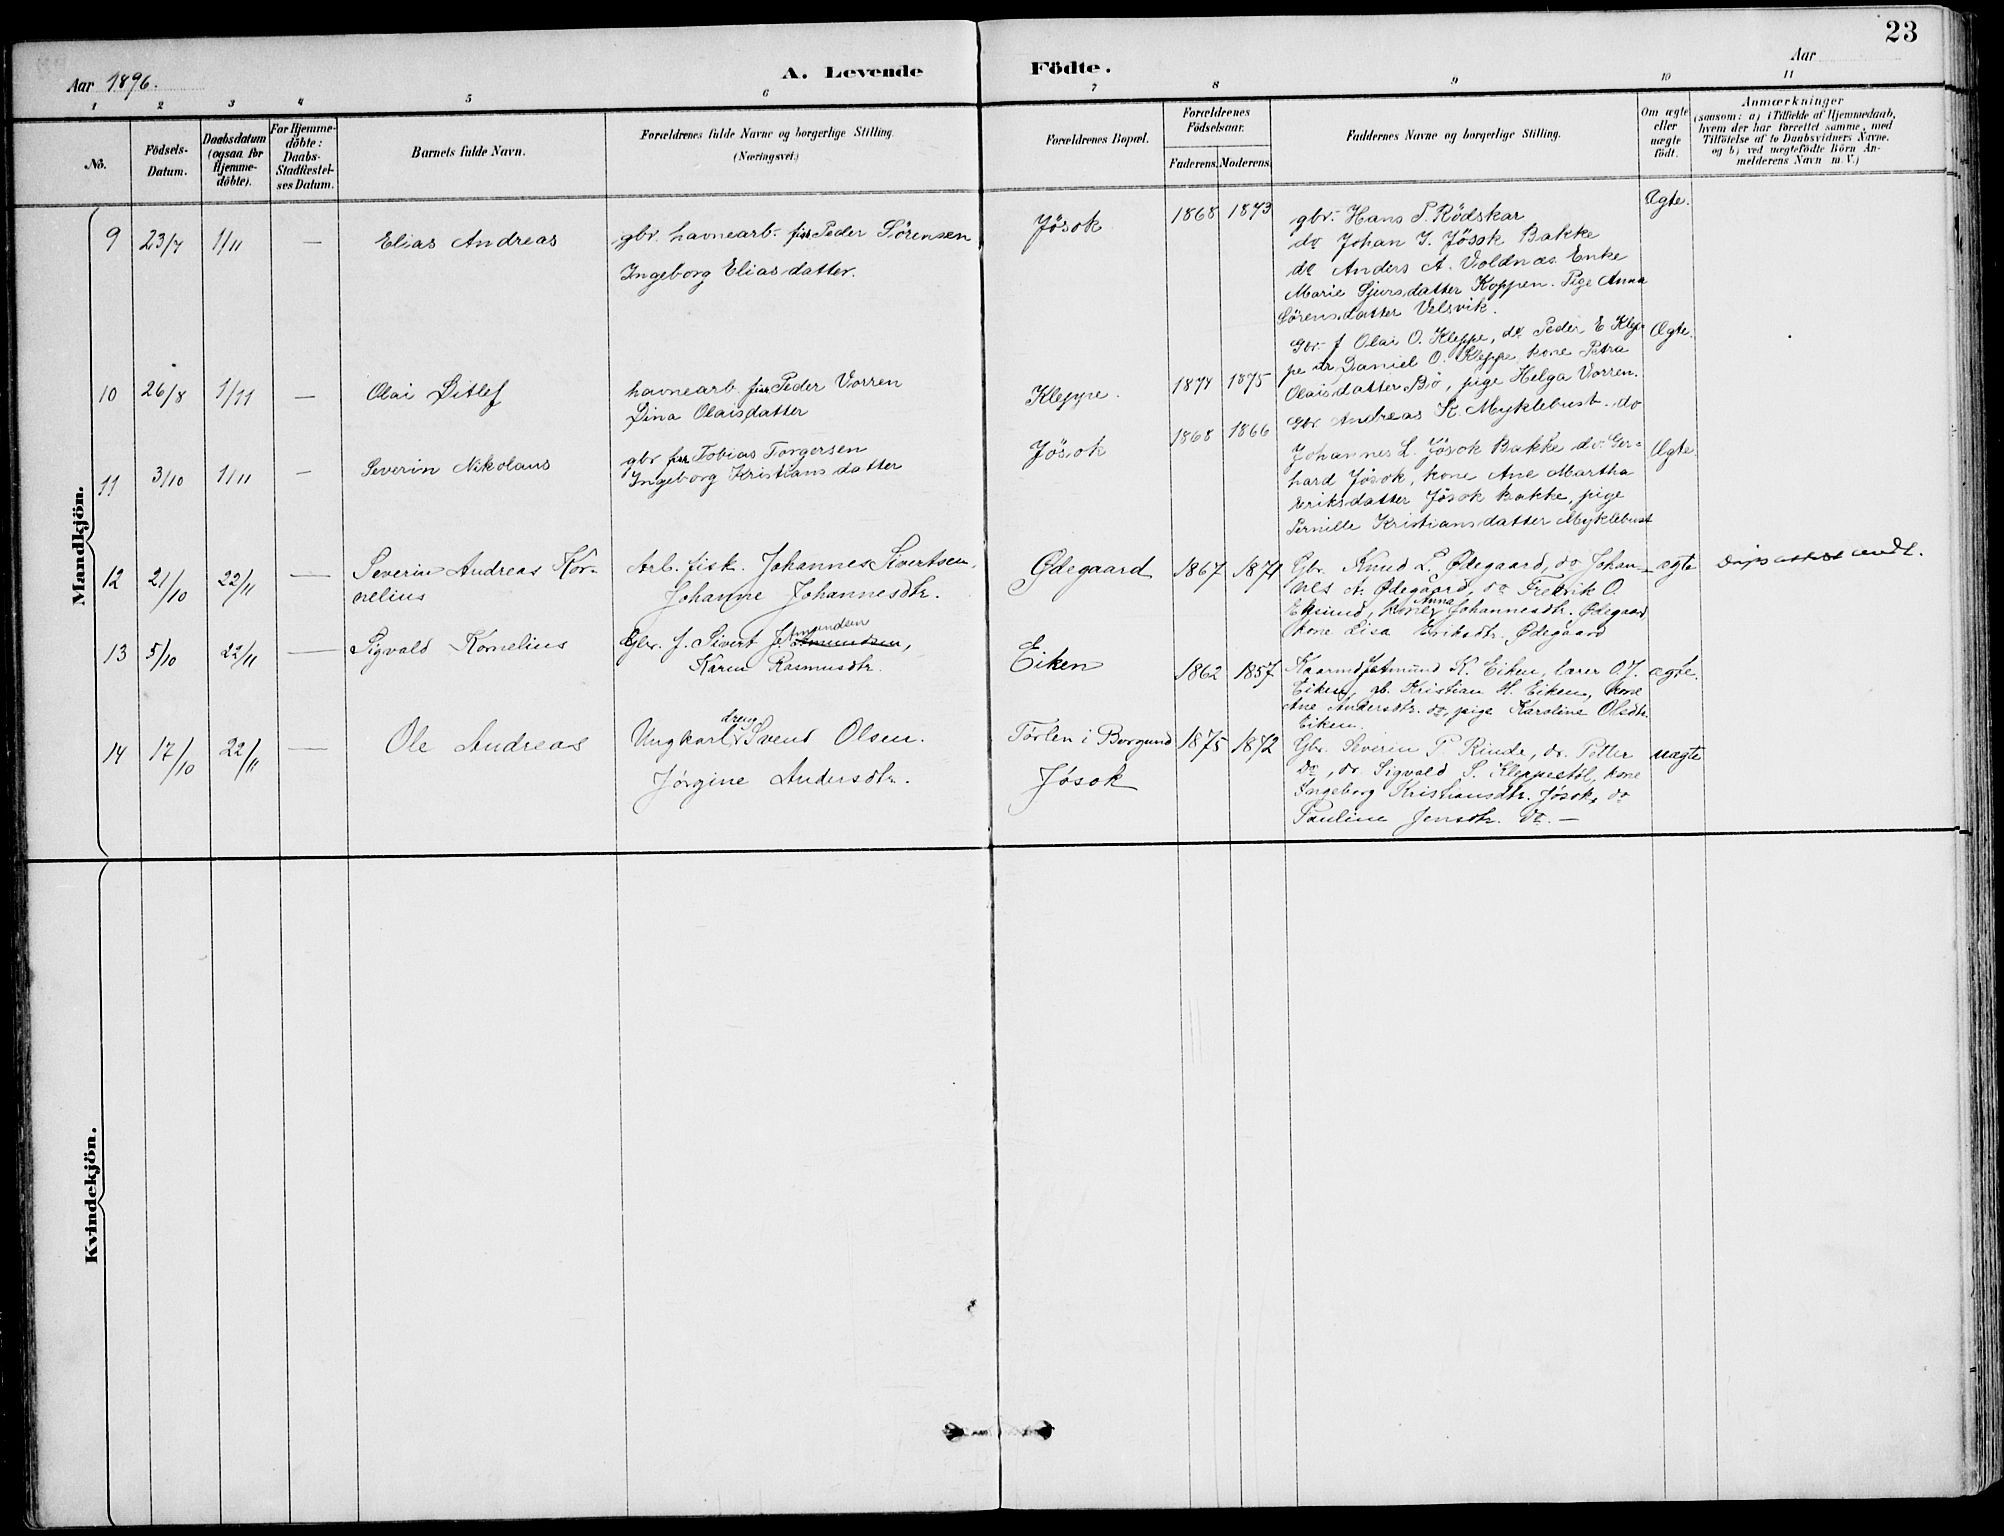 23
Aar 1896.
A. Levende Födte.
Aar
1 2 3 4 5 6 7 8 9 10 11
Nö.
Födsels-Datum.
Daabsdatum (ogsaa for Hjemme-döbte).
For Hjemme-döbte: Daabs-Stadfæstel-ses Datum.
Barnets fulde Navn.
Forældrenes fulde Navne og borgerlige Stilling.
(Næringsvei.)
Forældrenes Bopæl.
Forældrenes Födselsaar.
Faderens. Moderens.
Faddernes Navne og borgerlige Stilling.
Om ægte eller uægte födt.
Anmærkninger
(saasom: a) i Tilfælde af Hjemmedaab,
hvem der har forrettet samme, med
Tilföielse af to Daabsvidners Navne.
og b) ved uægtefödte Börn An-
melderens Navn m. V.)
Mandkjön.
9 23/7 1/11 — Elias Andreas
gbr. havnearb. fisk Peder Sörensen
Ingeborg Eliasdatter.
Jösok 1868 1873
gbr. Hans P. Rödskar
do Johan J. Jösok Bakke
do Anders A. Voldnæs. Enke
Marie Sjursdatter Koppen. Pige Anna
Sörensdatter Velsvik.
Ægte.
10 26/8 1/11 — Olai Ditlef
havnearb. fisk Peder Vorren
Dina Olaisdatter
Kleppe. 1874 1875
Gbr. f Olai O. Kleppe, do. Peder E Klep-
pe do Daniel O. Kleppe kone Petra
Olaisdatter Bö, pige Helga Vorren.
Ægte.
11 3/10 1/11 — Severin Nikolaus
gbr fisk Tobias Torgersen
Ingeborg Kristiansdatter
Jösok 1868 1866
Gbr. Andreas K. Myklebust. do
Johannes L. Jösok Bakke do. Ger-
hard Jösok, kone Ane Martha
Eriksdatter Jösok Bakke, pige
Pernille Kristiansdatter Myklebust
Ægte.
12 21/10 22/11 — Severin Andreas Kor-
nelius
Arb. fisk. Johannes Sivertsen,
Johanne Johannesdtr.
Ødegaard 1867 1871
Gbr. Knud L. Ødegaard, do Johan-
nes A. Ødegaard, do Fredrik O.
Eksund, kone Anna Johannesdtr. Ødegaard
kone Lisa Eriksdtr. Ødegaard
ægte
13 5/10 22/11 — Sigvald Kornelius
Gbr. f. Sivert J. Amundsen,
Karen Rasmusdtr.
Eiken 1862 1857
Kaarmd Jetmund K. Eiken, lærer O.J.
Eiken, gb. Kristian H. Eiken, kone
Ane Andersdtr. do, pige Karoline Olsdtr.
Eiken.
ægte.
14 17/10 22/11 — Ole Andreas
Ungkarl, dreng Svend Olsen.
Jörgine Andersdtr.
Törlen i Borgund 1875 1872
Jösok
Gbr. Severin P. Rinde, do. Petter
Do, do. Sigvald S. Kleppestöl, kone
Ingeborg Kristiansdtr. Jösok, do
Pauline Jensdtr. do. —
uægte
Kvindekjön.